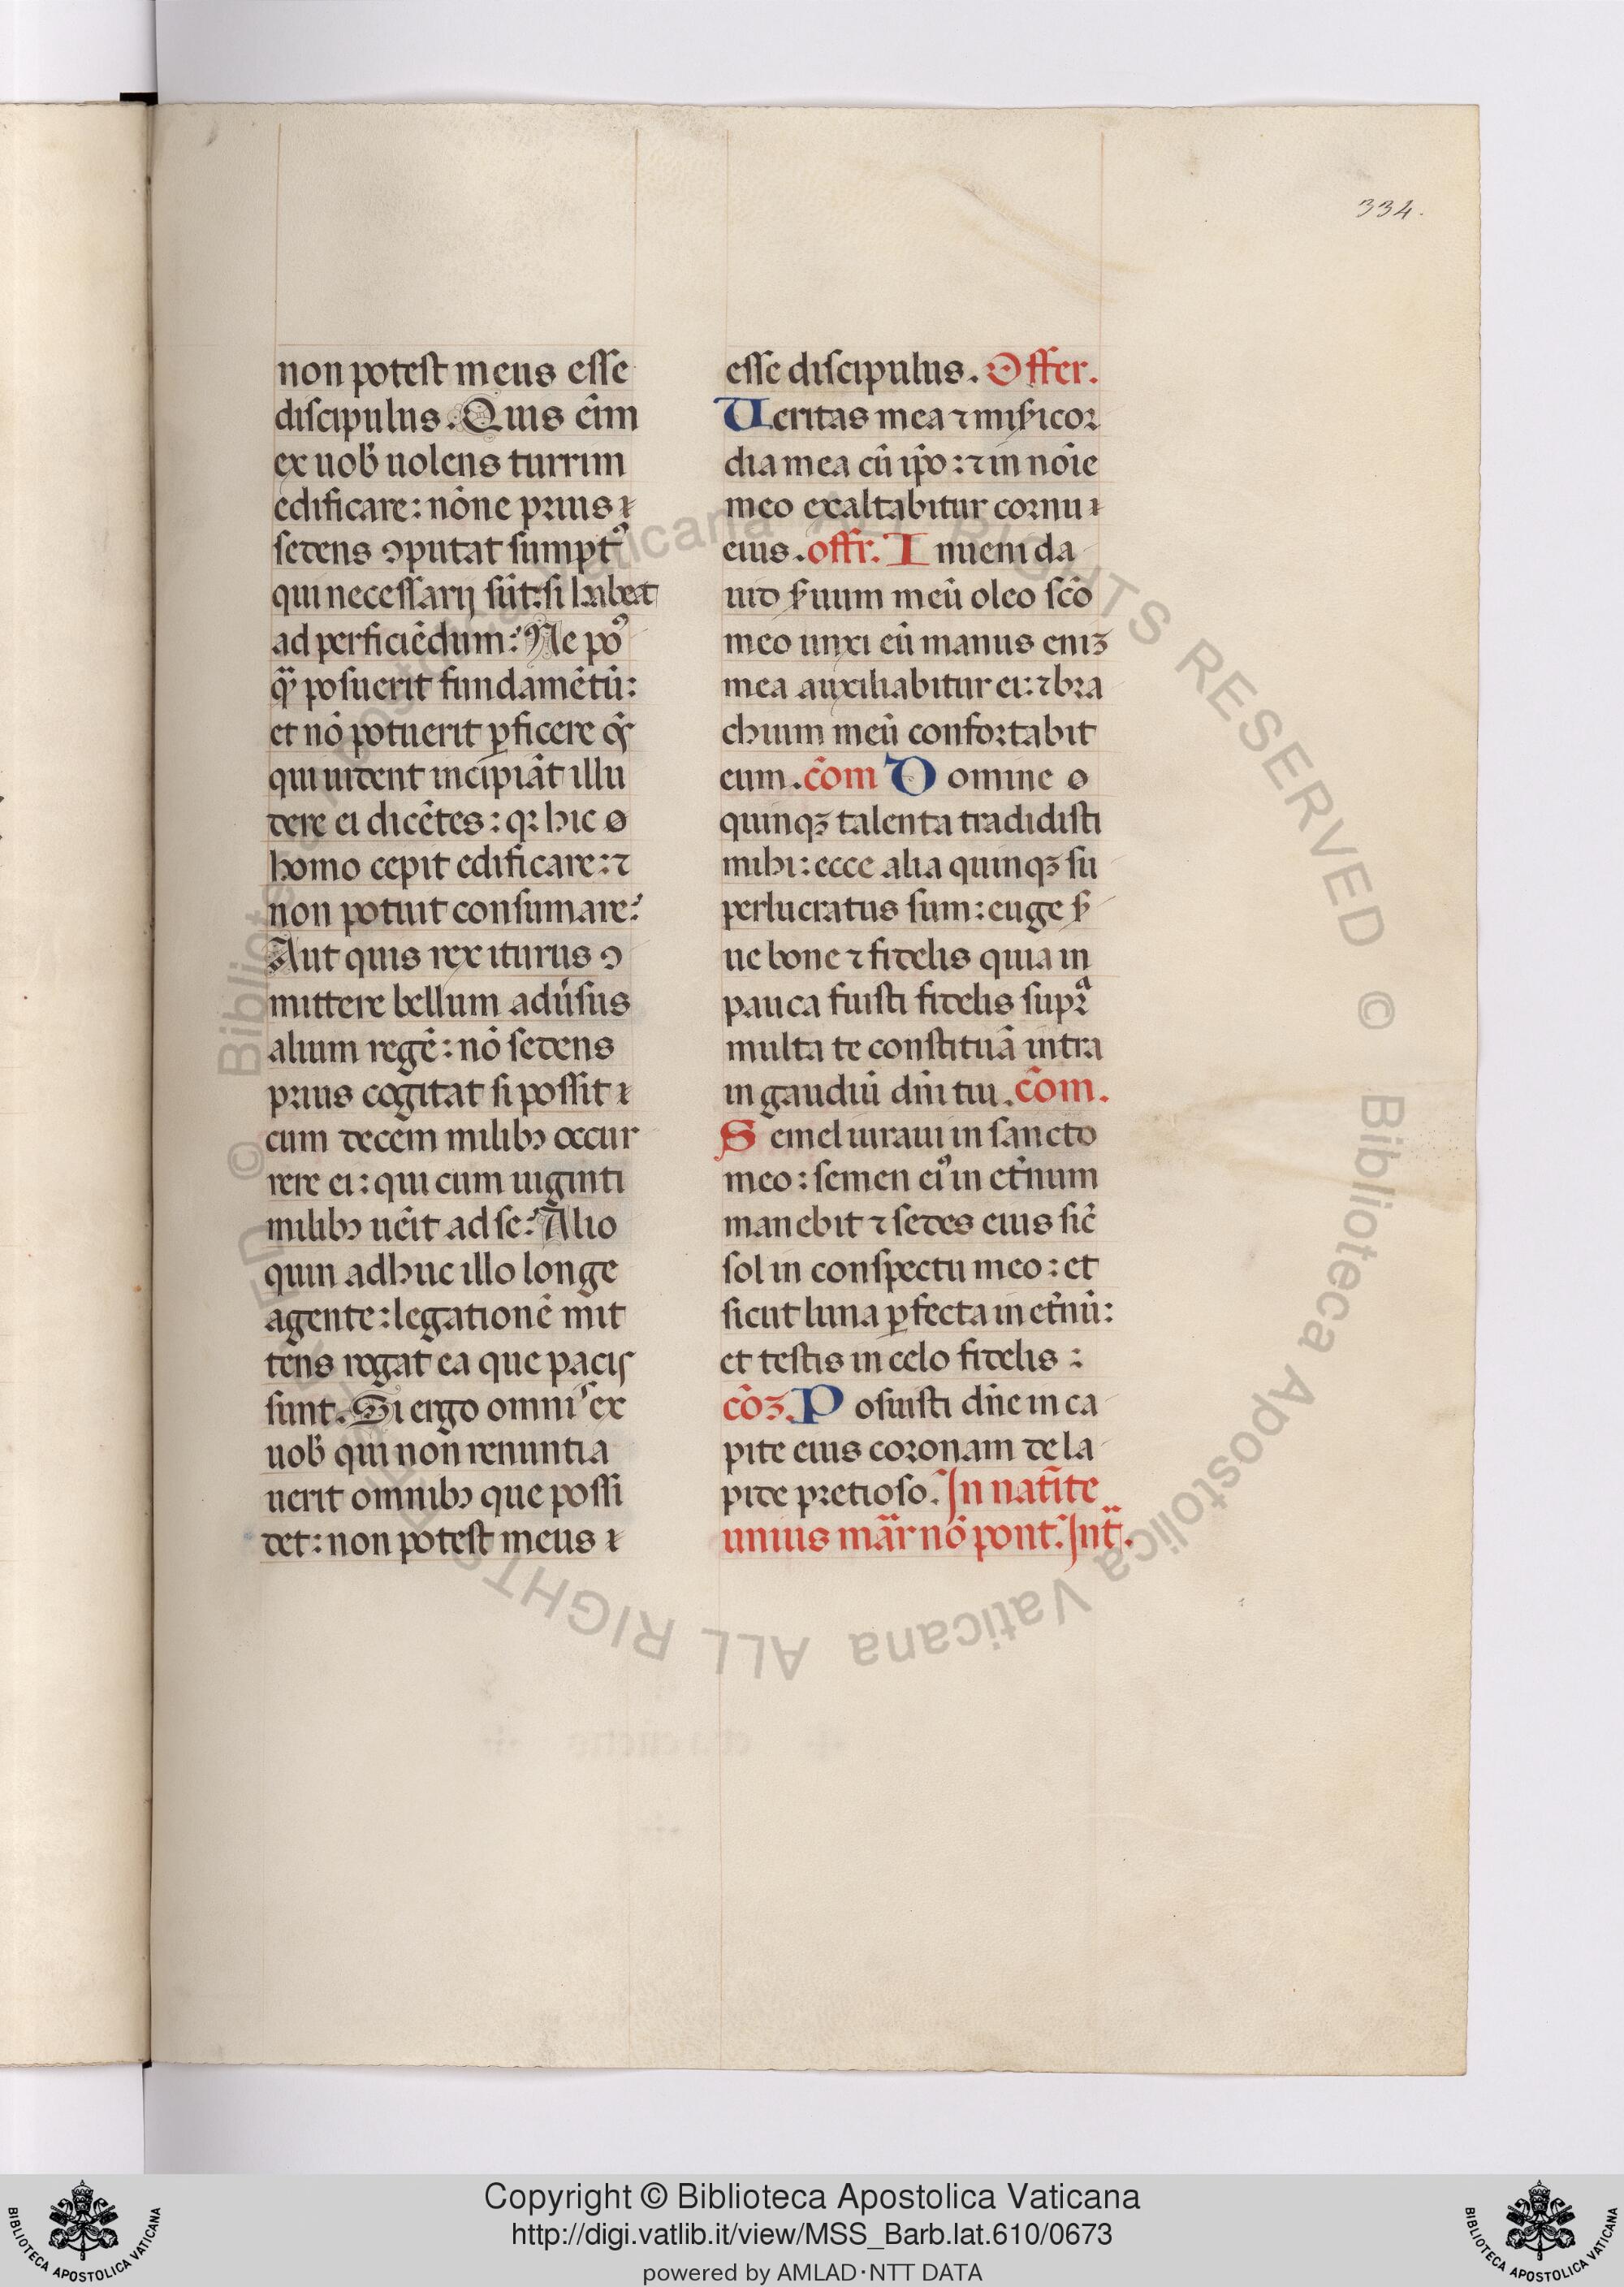 334.
non potest meus esse
discipulus. Quis ei̅m
ex uob̕ uolens turrim
edificare: no̅ne prius
sedens ꝯputat sumptꝰ
qui necessarij su̅t: si habeat
ad perficie̅dum: Ne poꝰ
posuerit fundame̅tu̅:
et no̅ potuerit ꝑficere
qui uident incipia̅t illu
dere ei dice̅tes: hic
homo cepit edificare: ⁊
non potuit consumare:
Aut quis rex iturus ꝯ
mittere bellum adu̕sus
alium rege̅: no̅ sedens
prius cogitat si possit
cum decem milibꝫ occur
rere ei: qui cum uiginti
milibꝫ ue̅it ad se: Alio
quin adhuc illo longe
agente: legatione̅ mit
tens rogat ea que pacis
sunt. Si ergo omnis ex
uob̕ qui non renuntia
uerit omnibꝫ que possi
det: non potest meus
esse discipulus. Offer.
Ueritas mea ⁊ mis̕icor
dia mea cu̅ ip̅o: ⁊ in no̅ie
meo exaltabitur cornu
eius. offr. Inueni da
uid s̕uum meu̅ oleo sc̅o
meo unxi eu̅ manus eniꝫ
mea auxiliabitur ei: ⁊ bra
chium meu̅ confortabit
eum. co̅m Domine
quinqꝫ talenta tradidisti
mihi: ecce alia quinqꝫ su
perlucratus sum: euge s̕
ue bone ⁊ fidelis quia in
pauca fuisti fidelis supra
multa te constitua̅ intra
in gaudiu̅ dn̅i tui. co̅m.
Semel iuraui in sancto
meo: semen eiꝰ in et̕num
manebit ⁊ sedes eius sic̅
sol in conspectu meo: et
sicut luna ꝑfecta in et̕nu̅:
et testis in celo fidelis:
co̅ꝫ. Posuisti dn̅e in ca
pite eius coronam de la
pide pretioso. In nat̅ite
unius mar̅ no̅ pont. Int̅.
© Biblioteca Apostolica Vaticana ALL RIGHTS RESERVED © Biblioteca Apostolica Vaticana ALL RIGHTS RESERVED
Copyright © Biblioteca Apostolica Vaticana
http://digi.vatlib.it/view/MSS_Barb.lat.610/0673
powered by AMLAD·NTT DATA
BIBLIOTECA APOSTOLICA VATICANA
BIBLIOTECA APOSTOLICA VATICANA